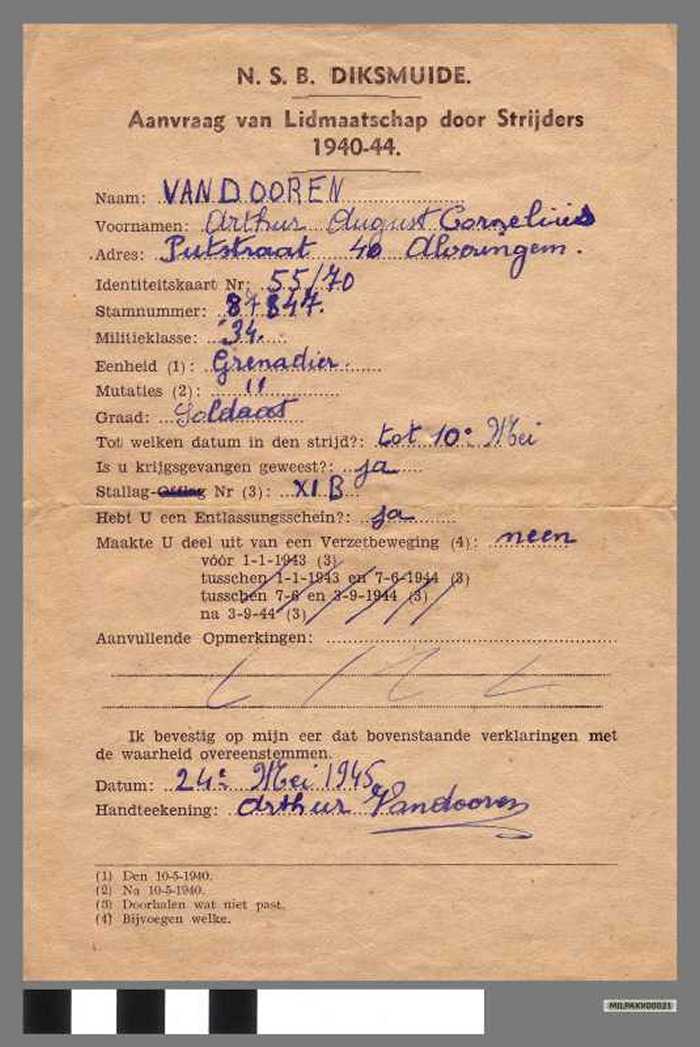 N. S. B. DIKSMUIDE.
Aanvraag van Lidmaatschap door Strijders
1940-44.
Naam: VANDOOREN
Voornamen: Arthur August Cornelius
Adres: Putstraat 40 Alveringem.
Identiteitskaart Nr: 55/70
Stamnummer: 87847.
Militieklasse: 34.
Eenheid (1): Grenadier.
Mutaties (2): "
Graad: Soldaat
Tot welken datum in den strijd?: tot 10e Mei
Is u krijgsgevangen geweest?: ja
Stallag-Oflag Nr (3): XI B
Hebt U een Entlassungsschein?: ja
Maakte U deel uit van een Verzetbeweging (4): neen
vóór 1-1-1943 (3)
tusschen 1-1-1943 en 7-6-1944 (3)
tusschen 7-6 en 3-9-1944 (3)
na 3-9-44 (3)
Aanvullende Opmerkingen:
Ik bevestig op mijn eer dat bovenstaande verklaringen met
de waarheid overeenstemmen.
Datum: 24e Mei 1945
Handteekening: Arthur Vandooren
(1) Den 10-5-1940.
(2) Na 10-5-1940.
(3) Doorhalen wat niet past.
(4) Bijvoegen welke.
MILPAXX00021